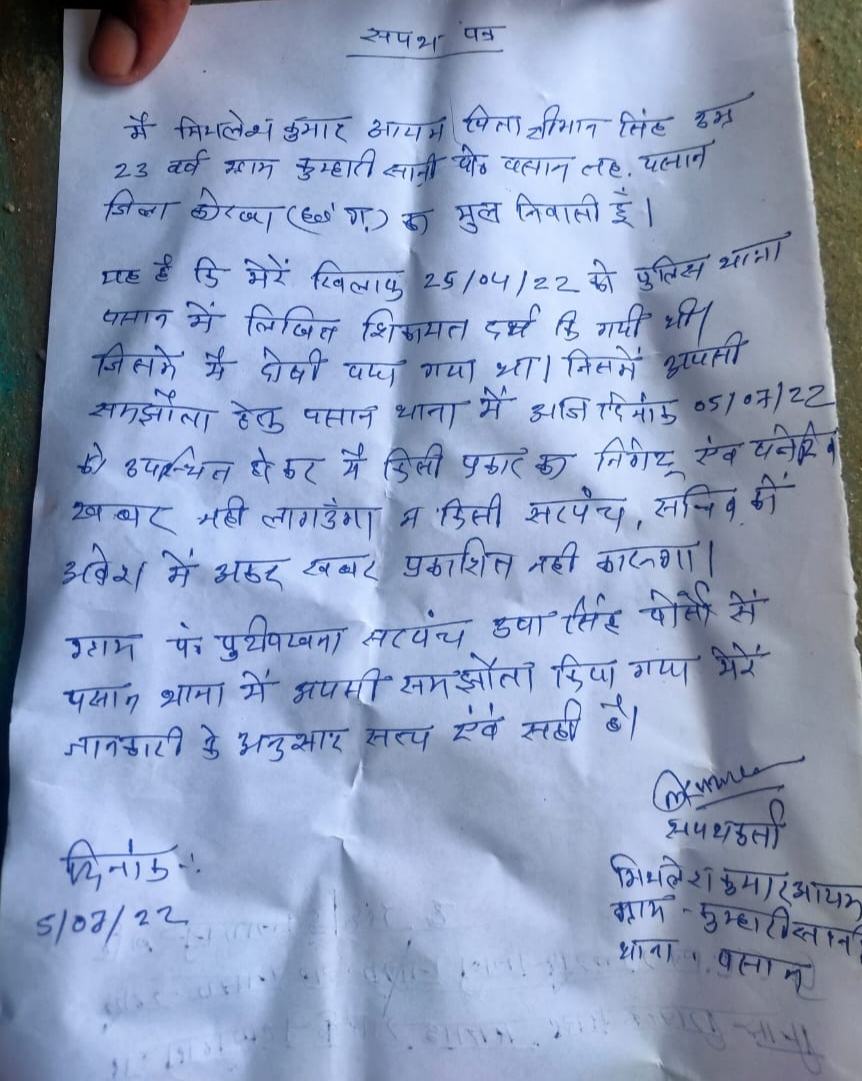 सपथ पत्र
मैं मिथलेश कुमार आयम पिता श्रीमान सिंह उम्र
23 वर्ष ग्राम कुम्हारी सानी पो० पसान तह. पसान
जिला कोरबा (छ० ग.) का मुल निवासी हूँ।
यह है कि मेरें खिलाफ 25/04/22 को पुलिस थाना
पसान में लिखित शिकायत दर्ज कि गयी थी।
जिसमे मै दोषी पाया गया था। जिसमें आपसी
समझौता हेतु पसान थाना में आज दिनांक 05/07/22
को उपस्थित होकर मै किसी प्रकार का एंव
खबर नही लागाउंगा न किसी सरपंच, सचिव की
आवेश में आकर खबर प्रकाशित नही कारूगा।
ग्राम पं. पुटीपखना सरपंच उषा सिंह पोर्ते से
पसान थाना में आपसी समझौता किया गया मेरें
जानकारी के अनुसार सत्य एंवं सही है।
सपथकर्ता
दिनांक :
मिथलेश कुमार आयम
5/07/22
ग्राम - कुम्हारीसानी
थाना - पसान